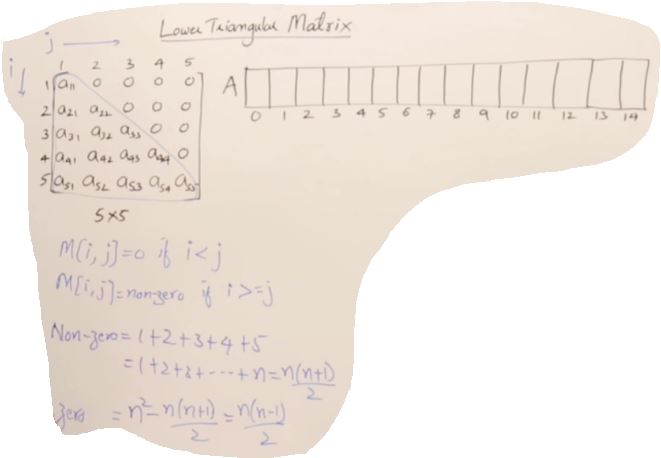 Lower Triangular Matrix
j →
i ↓
1 2 3 4 5
1 a11 0 0 0 0
2 a21 a22 0 0 0
3 a31 a32 a33 0 0
4 a41 a42 a43 a44 0
5 a51 a52 a53 a54 a55
5×5
A
0 1 2 3 4 5 6 7 8 9 10 11 12 13 14
M[i, j]=0 if i<j
M[i,j]=non-zero if i>=j
Non-zero=1+2+3+4+5
=1+2+3+----+n=n(n+1)/2
zero =n²-n(n+1)/2=n(n-1)/2